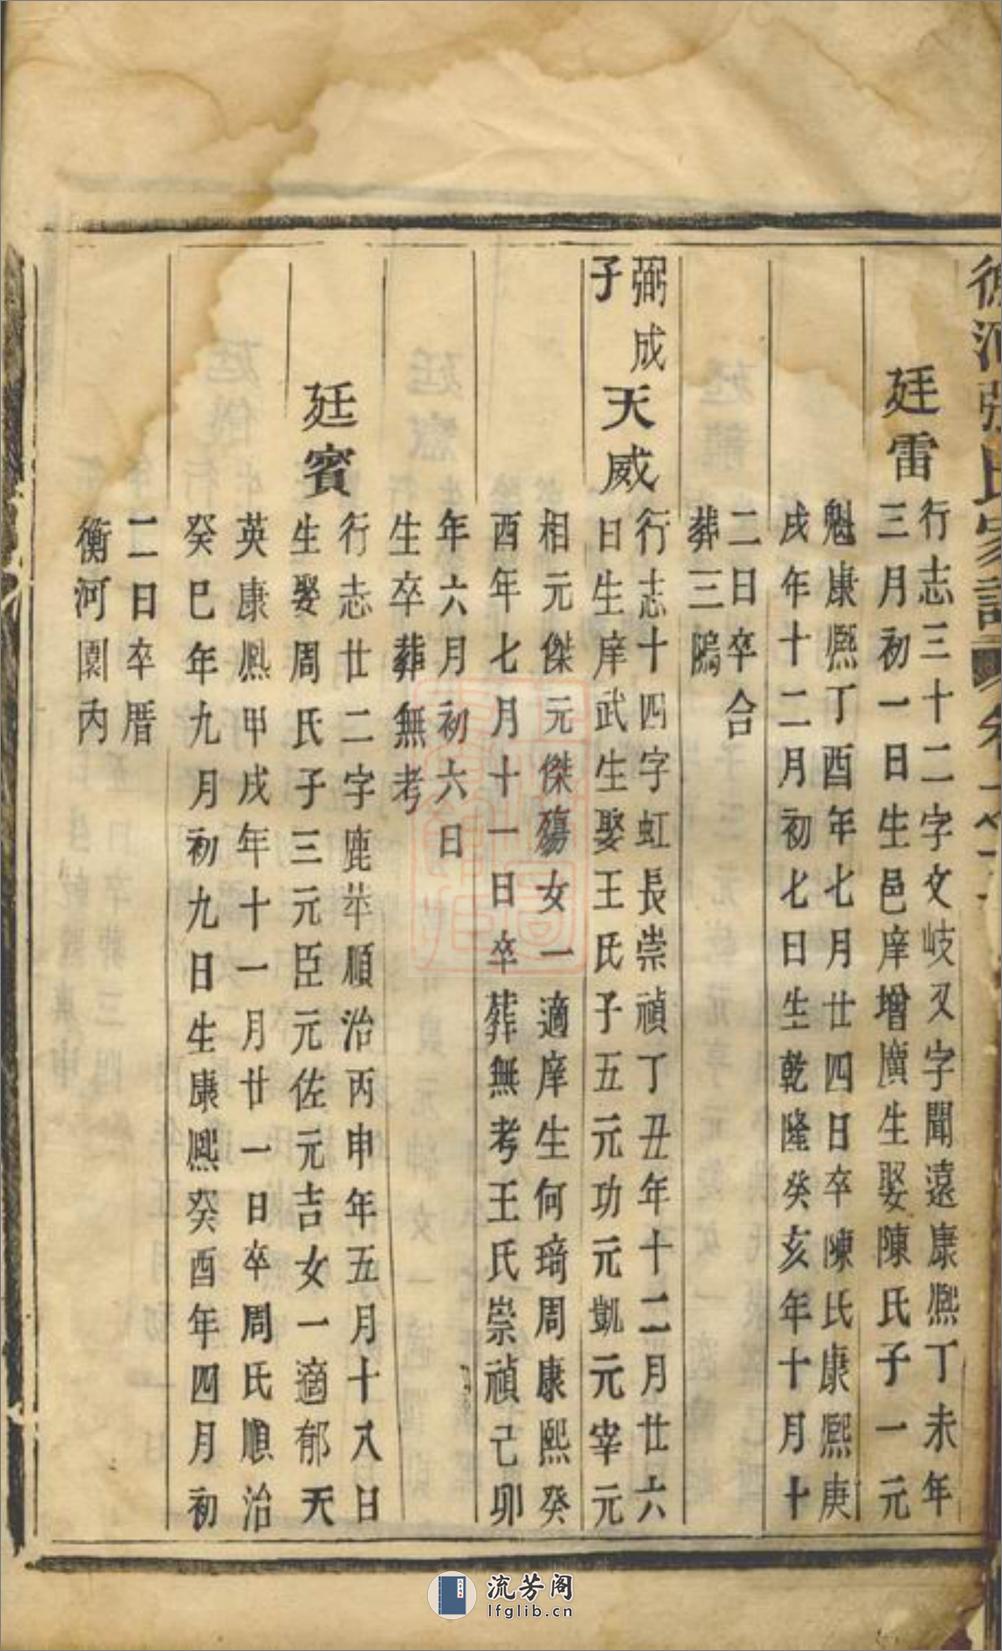 張氏家譜
廷雷
行志三十二字文岐又字聞遠康熙丁未年
三月初一日生邑庠增廣生娶陳氏子一元
魁康熙丁酉年七月廿四日卒陳氏康熙庚
戌年十二月初七日生乾隆癸亥年十月十
二日卒合
葬三隝
弼成
子
天威
行志十四字虹長崇禎丁丑年十二月廿六
日生庠武生娶王氏子五元功元凱元宰元
相元傑元傑殤女一適庠生何琦周康熙癸
酉年七月十一日卒葬無考王氏崇禎己卯
年六月初六日
生卒葬無考
廷賓
行志廿二字鹿苹順治丙申年五月十八日
生娶周氏子三元臣元佐元吉女一適郁天
英康熙甲戌年十一月廿一日卒周氏順治
癸巳年九月初九日生康熙癸酉年四月初
二日卒厝
衡河園內
流芳阁
lfglib.cn